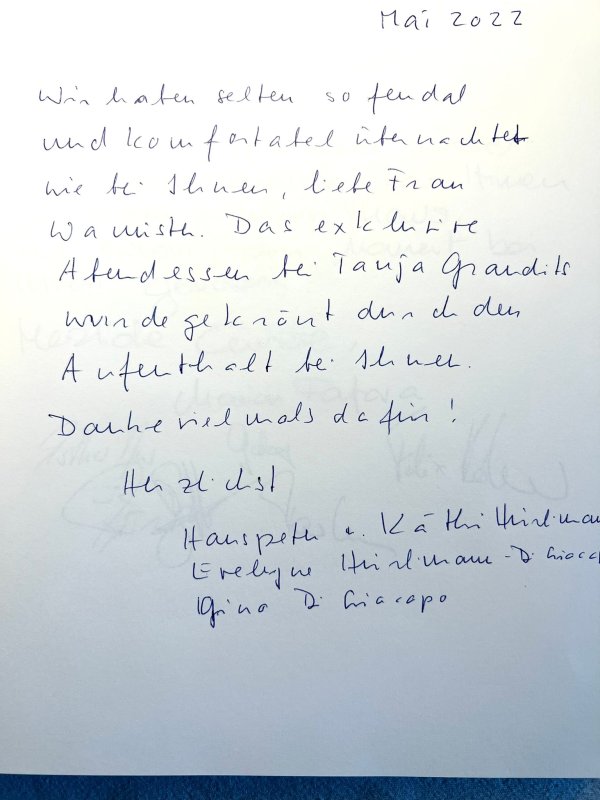 Mai 2022
Wir haben selten so feudal
und komfortabel übernachtet
wie bei Ihnen, liebe Frau
Das exklusive
Abendessen bei Tanja Grandits
wurde gekrönt durch den
Aufenthalt bei Ihnen.
Danke vielmals dafür!
Herzlichst
Hanspeter u. Käthi
Evelyne
Gino Di Giacopo